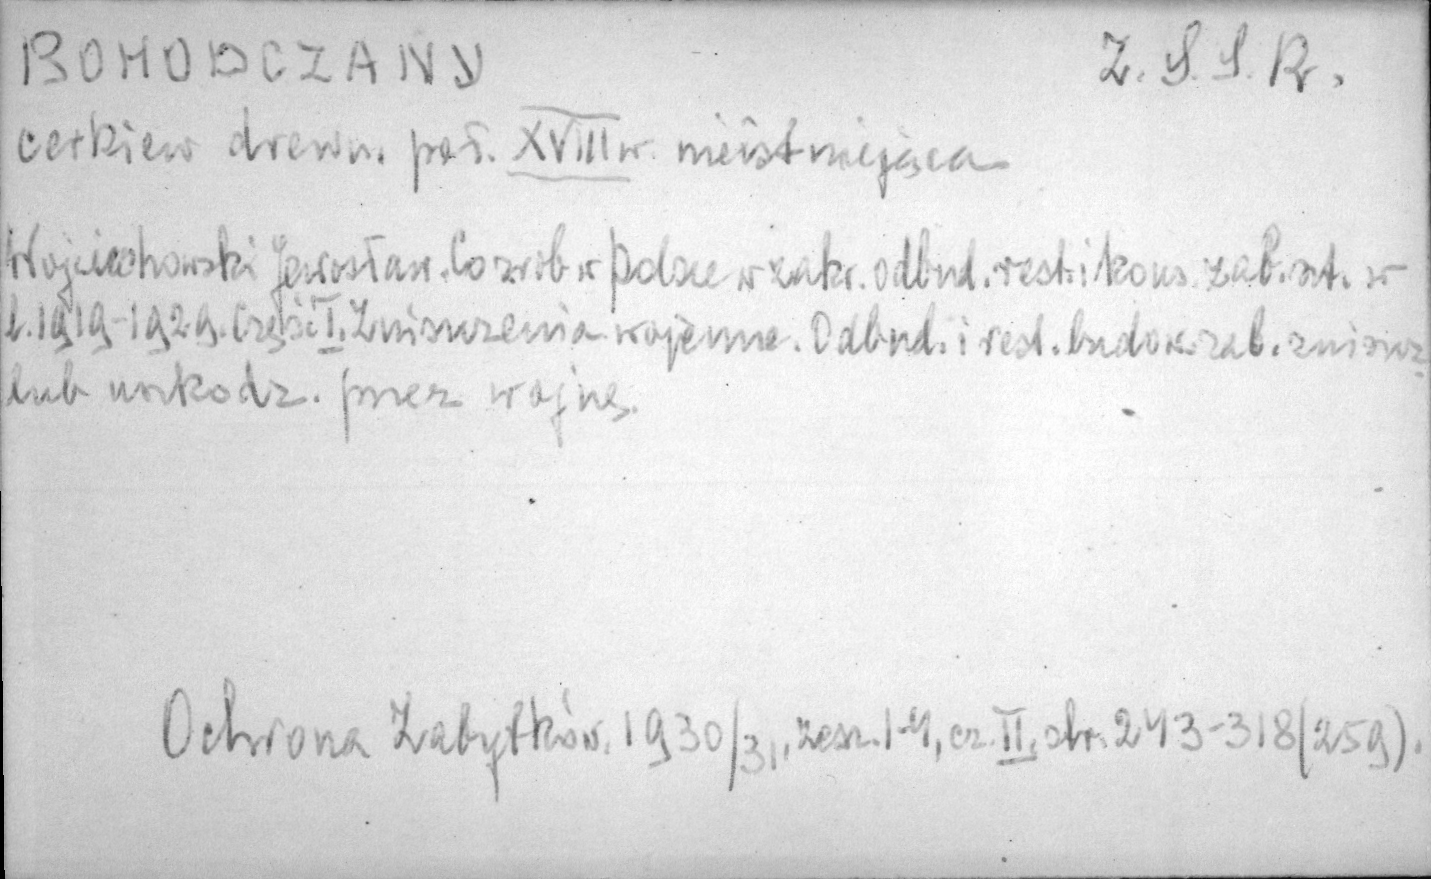 BOHODCZANY Z.S.S.R.
cerkiew drewn. poł. XVIII w. nieistniejąca
Wojciechowski Jarosław. Co zrob. w Polsce w zakr. odbud. rest. i kons. zab. szt. w
l. 1919-1929. Część I. Zniszczenia wojenne. Odbud. i rest. budow. zab. zniszcz.
lub uszkodz. przez wojnę.
Ochrona Zabytków. 1930/31, zesz. 1-4, cz. II, str. 243-318 (259).